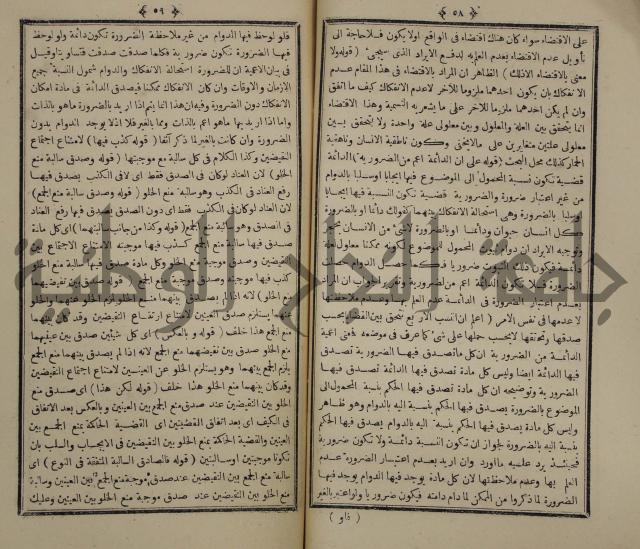 ﴿ ٥٨ ﴾
على الاقتضاء سواء كان هناك اقتضاء فى الواقع اولا يكون فلاحاجة الى
تأويل عدم الاقتضاء بعدم العلم به لدفع الايراد الذى سيجئ ( قوله ولا
معنى بالاقتضاء الا ذلك ) الظاهر ان المراد بالاقتضاء فى هذا المقام عدم
الانفكاك بان يكون احدهما ملزوما للآخر وعدم الانفكاك كيف ما اتفق
وان لم يكن احدهما ملزوما للآخر على ما يشعر به التسمية وهذا الاقتضاء
انما يتحقق بين العلة والمعلول وبين معلولى علة واحدة ولا يتحقق بين
معلولى علتين متغايرين على مالايخفى وتكون ناطقية الانسان وناهقية
الحمار كذلك محل البحث ( قوله على ان الدائمة اعم من الضرورية ) الدائمة
قضية تكون نسبة المحمول الى الموضوع فيها ايجابا اوسلبا بالدوام
من غير اعتبار ضرورة والضرورية قضية تكون النسبة فيها ايجابا
اوسلبا بالضرورة وهى استحالة الانفكاك بينهما كقولك دائما او بالضرورة
كل انسان حيوان ودائما او بالضرورة لاشئ من الانسان بحجر
وتوجيه الايراد ان دوام ثبوت المحمول للموضوع لكونه ممكنا معلول لعلة
دائمة فيكون ذلك الثبوت ضروريا فحصل الدوام حصلت
الضرورة فلا تكون الدائمة اعم من الضرورية وتقرير الجواب ان المراد
بعدم اعتبار الضرورة فى الدائمة عدم العلم بها وعدم ملاحظتها
لاعدمها فى نفس الامر ( اعلم ان النسب الاربع تتحقق بين القضايا بحسب
صدقها وتحققها لا بحسب حملها على شئ كما عرف فى موضعه فمعنى اعمية
الدائمة من الضرورية ان كل مادة تصدق فيها الضرورية تصدق
فيها الدائمة ايضا وليس كل مادة تصدق فيها الدائمة تصدق فيها
الضرورية وتوضيحه ان كل مادة تصدق فيها الحكم بنسبة المحمول الى
الموضوع بالضرورة يصدق فيها الحكم بنسبة اليه بالدوام وهو ظاهر
وليس كل مادة يصدق فيها الحكم بنسبة اليه بالدوام يصدق فيها الحكم
بنسبة اليه بالضرورة لجواز ان تكون النسبة دائمة ولا تكون ضرورية
فحينئذ يرد عليه ما اورد وان اريد بعدم اعتبار الضرورة عدم
العلم بها وعدم ملاحظتها لان كل مادة يوجد فيها الدوام يوجد فيها
الضرورة لما ذكروا من الممكن لما دام دامته فيكون ضروريا ولو اعتبر بالغير
( فلو )
﴿ ٥٩ ﴾
فلو لوحظ فيها الدوام من غير ملاحظة الضرورة تكون دائمة ولو لوحظ
فيها الضرورة تكون ضرورية فكلما صدقت صدقت فتساويتا وقيل
فى بيان الاعمية ان للضرورة استحالة الانفكاك والدوام شمول النسبة جميع
الازمان والاوقات وان كان الانفكاك ممكنا فيصدق الدائمة فى مادة امكان
الانفكاك دون الضرورة وفيه ان هذا انما يتم اذا اريد بالضرورة ما هو بالذات
واما اذا اريد بها ما هو اعم بالذات ومما بالغير فلا اذ لا يوجد الدوام بدون
الضرورة وان كانت بالغير لما ذكر آنفا ( قوله كذب فيها ) لامتناع اجتماع
النقيضين وكذا الكلام فى كل سالبة مع موجبتها ( قوله وصدق سالبة منع
الخلو ) لان العناد لو كان فى الصدق فقط اى لا فى الكذب يصدق فيها
رفع العناد فى الكذب وهو سالبة منع الخلو ( قوله وصدق سالبة منع الجمع )
لان العناد لو كان فى الكذب فقط اى دون الصدق يصدق فيها رفع العناد
فى الصدق وهو سالبة منع الجمع ( قوله وكذا من جانب السالبتهما ) اى كل مادة
صدق فيها سالبة منع الجمع كذب فيها موجبته لامتناع الاجتماع بين
النقيضين وصدق موجبة منع الخلو وكل مادة صدق فيها سالبة منع الخلو
كذب فيها موجبته وصدق موجبة منع الجمع ( قوله صدق بين نقيضيهما
منع الخلو ) لانه اذا لم يصدق بينهما منع الخلو لزم الخلو عنهما والخلو
عنهما يستلزم صدق العينين لامتناع ارتفاع النقيضين وقد كان بينهما
منع الجمع هذا خلف ( قوله وبالعكس ) اى كل شيئين صدق بين عينيهما
منع الخلو صدق بين نقيضيهما منع الجمع لانه اذا لم يصدق بينهما منع الجمع
يلزم الجمع بينهما وهو يستلزم الخلو عن العينين لامتناع اجتماع النقيضين
وقد كان بينهما منع الخلو هذا خلف ( قوله لكن هذا ) اى صدق منع
الخلو بين النقيضين عند صدق منع الجمع بين العينين و بالعكس بعد الاتفاق
فى الكيف اى بعد اتفاق القضيتين اى القضية الحاكمة بمنع الجمع بين
العينين والقضية الحاكمة بمنع الخلو بين النقيضين فى الايجاب والسلب بان
تكونا موجبتين اوسالبتين ( قوله فالصادق السالبة المتفقة فى النوع ) اى
سالبة منع الجمع بين النقيضين عند صدق موجبة منع الجمع بين العينين وسالبة
منع الخلو بين النقيضين عند صدق موجبة منع الخلو بين العينين وعليك
جامعة النجاح الوطنية